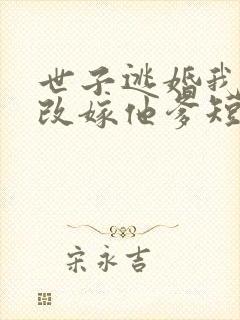 世子逃婚我
改嫁他爹短
宋永吉